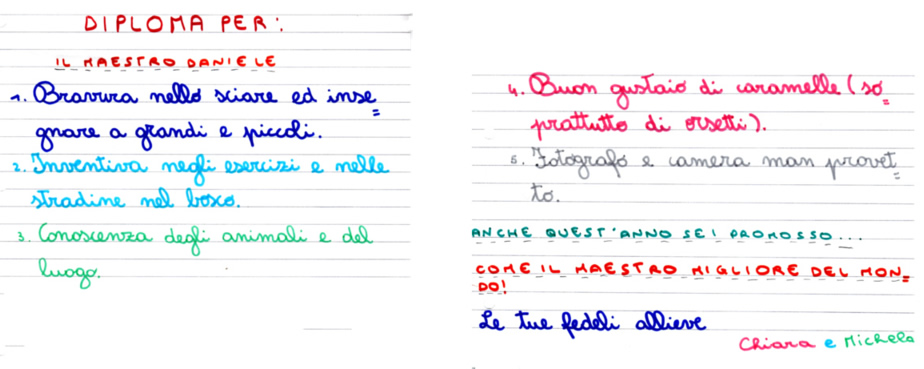 DIPLOMA PER:
IL MAESTRO DANIELE
1. Bravura nello sciare ed inse=
gnare a grandi e piccoli.
2. Inventiva negli esercizi e nelle
stradine nel bosco.
3. Conoscenza degli animali e del
luogo.
4. Buon gustaio di caramelle (so=
prattutto di orsetti).
5. Fotografo e camera man provet=
to.
ANCHE QUEST'ANNO SEI PROMOSSO...
COME IL MAESTRO MIGLIORE DEL MON=
DO!
Le tue fedeli allieve
Chiara e Michela